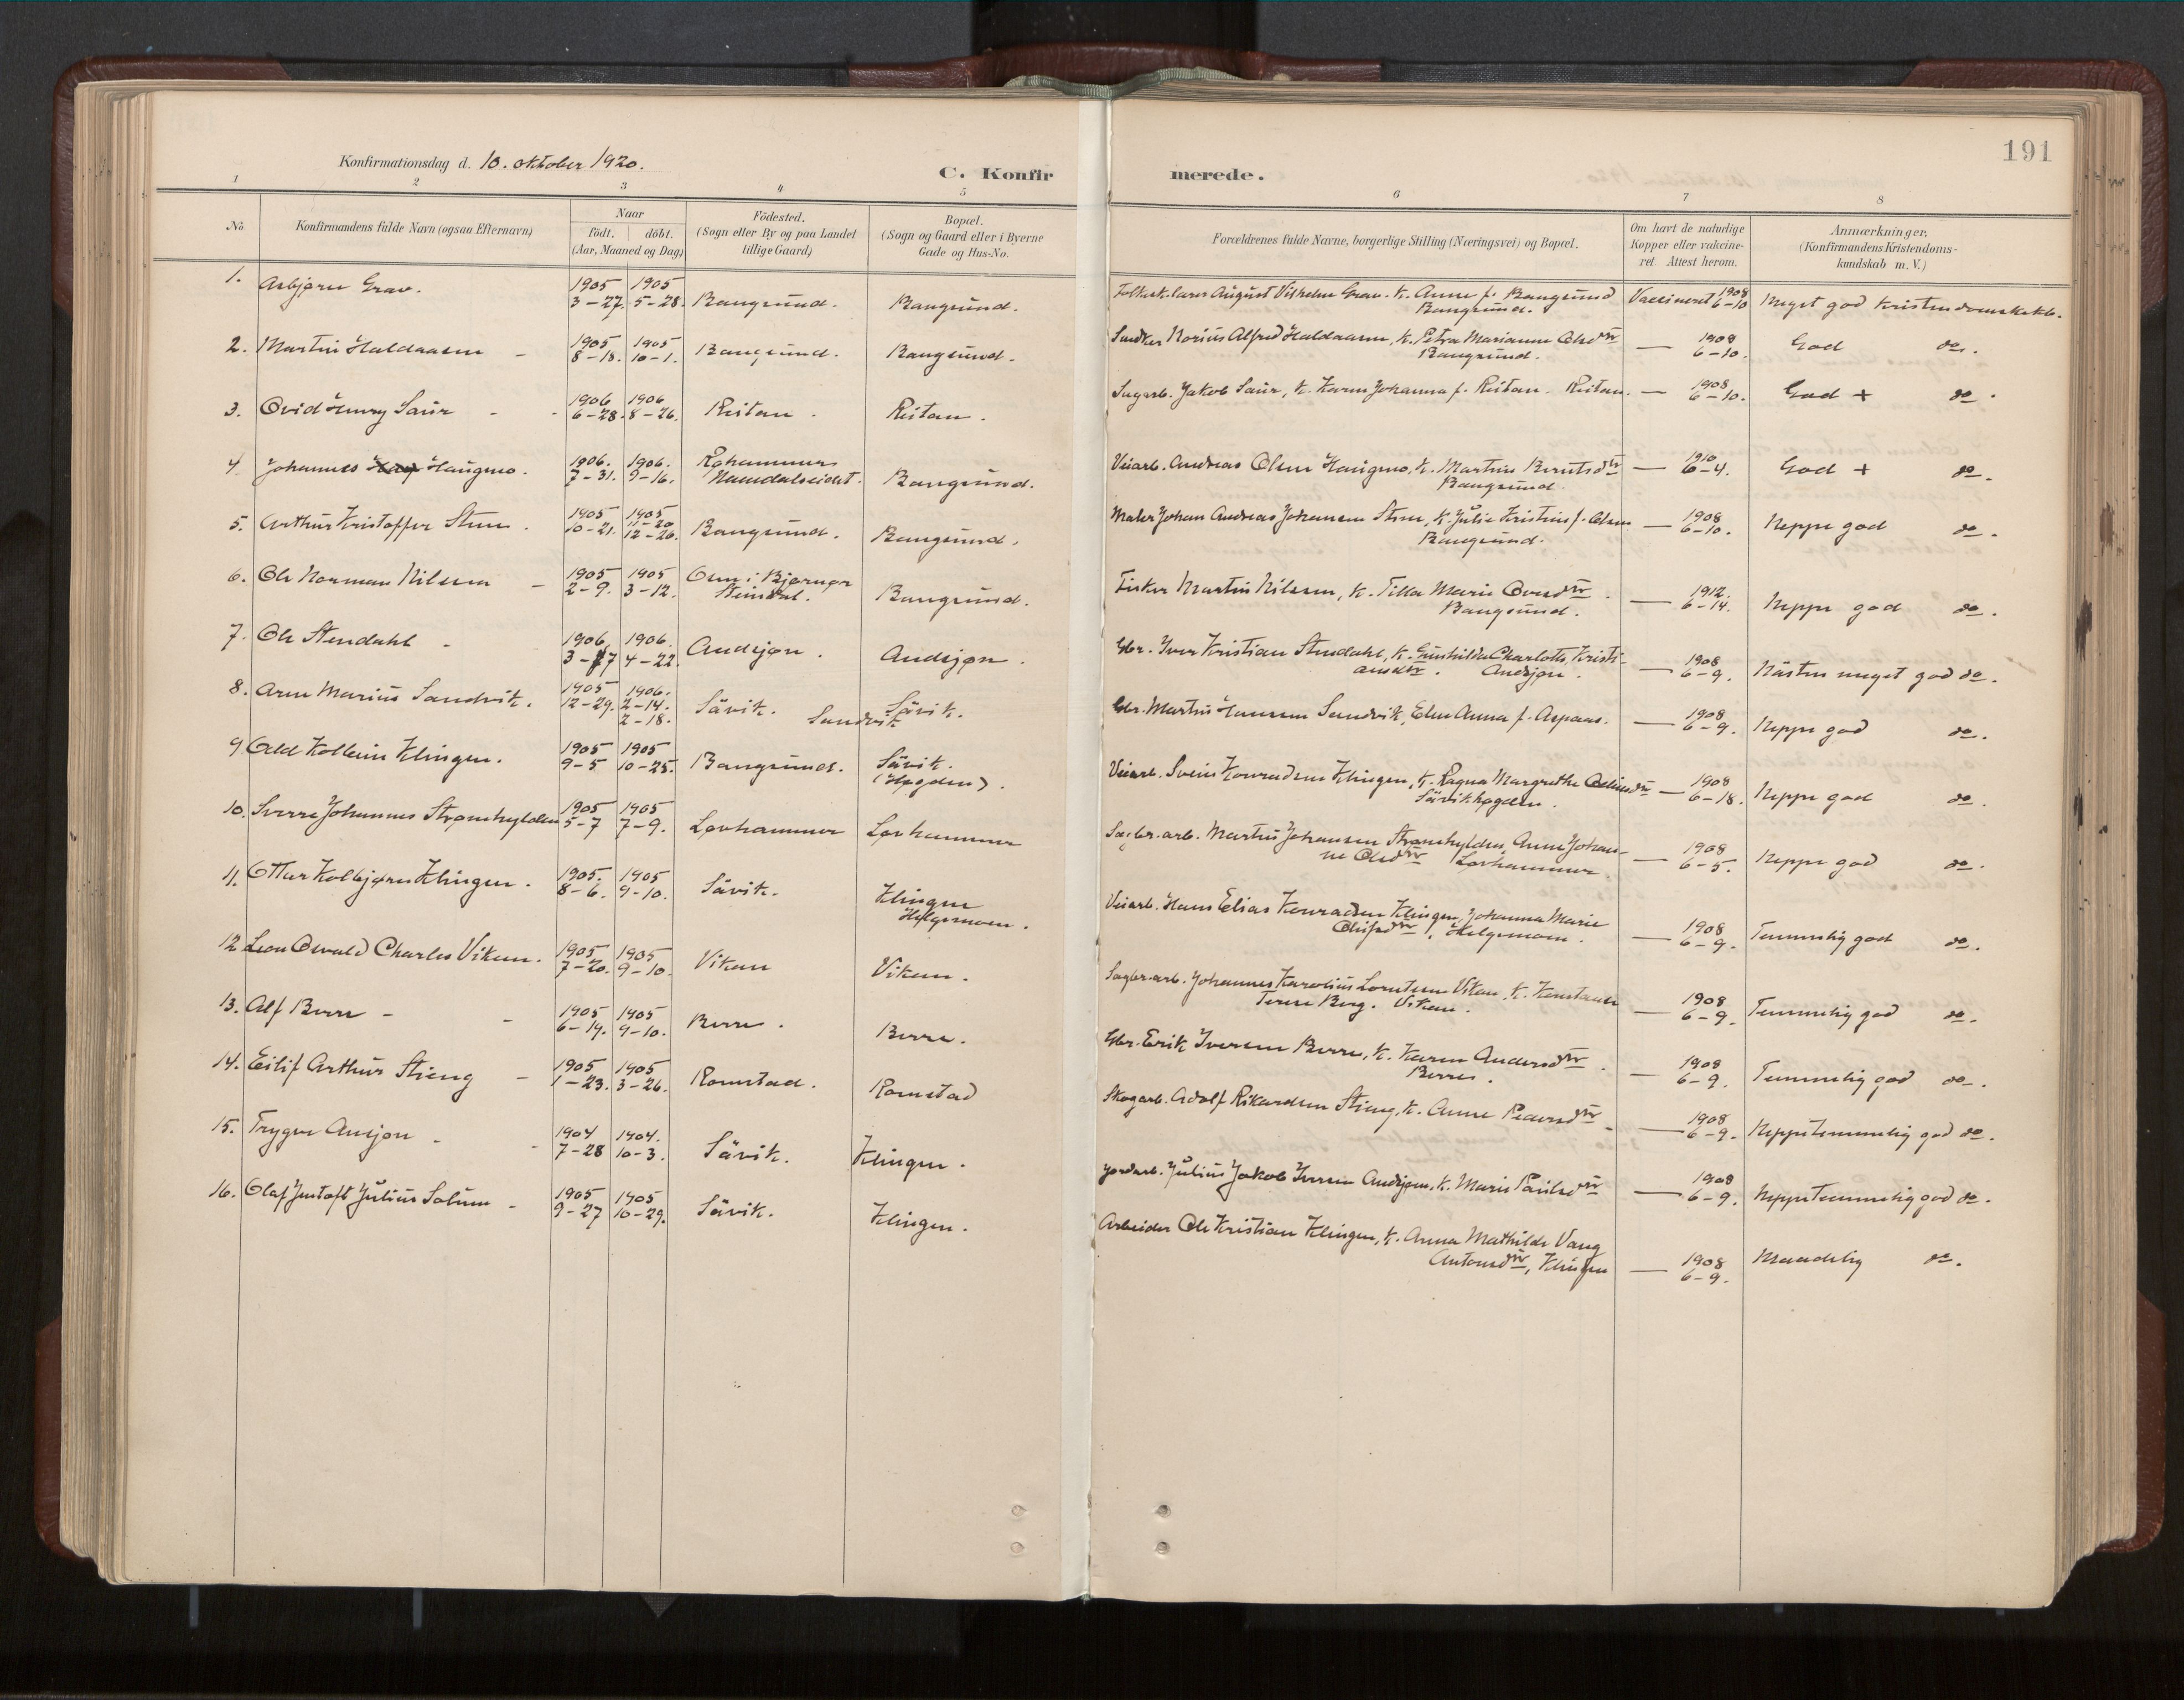 191
Konfirmationsdag d. 10. oktober 1920.
C. Konfirmerede.
1 2 3 4 5 6 7 8
No
Konfirmandens fulde Navn (ogsaa Efternavn)
Naar
födt. döbt.
(Aar, Maaned og Dag)
Födested.
(Sogn eller By og paa Landet
tillige Gaard)
Bopæl.
(Sogn og Gaard eller i Byerne
Gade og Hus-No.
Forældrenes fulde Navne, borgerlige Stilling (Næringsvei) og Bopæl.
Om havt de naturlige
Kopper eller vaccine-
ret. Attest herom.
Anmærkninger,
(Konfirmandens Kristendoms-
kundskab m. V.)
1. Asbjørn Grav. 1905 3-27. 1905 5-28. Bangsund. Bangsund. August Vilhelm Grav. K. Anne f. Bangsund
Bangsund. Vaccineret 1908 6-10 Meget god
2. Martin Haldaasen - 1905 8-18. 1905 10-1. Bangsund. Bangsund. Norius Alfred Haldaasen, K. Petra Marianne Olsdtr
Bangsund. — 1908 6-10. God do.
3. Ovid Henry Saur - 1906 6-28. 1906 8-26. Reitan. Reitan. Sagarb. Jakob Saur, K. Karen Johanna f. Reitan - Reitan. — 1908 6-10. God + do.
4. Johannes Haugmo. 1906. 7-31. 1906. 9-16. Rohammer
Namdalseidet. Bangsund. Veiarb. Andreas Olsen Haugmo, K. Martine Berntsdtr
Bangsund. — 1910 6-4. God + do.
5. Arthur Kristoffer Sten. 1905 10-21. 1905 11-20 12-26. Bangsund. Bangsund. Maler Johan Andreas Johansen Sten, K. Julie Kristine f. Olsen
Bangsund. — 1908 6-10. Neppe god do.
6. Ole Norman Nilssen - 1905 2-9. 1905 3-12. Osen i Bjørnør
Steinsdal. Bangsund. Fisker Martin Nilssen, K. Tilla Marie Ovesdtr.
Bangsund. — 1912. 6-14. Neppe god do.
7. Ole Stendahl - 1906 3-17 1906. 4-22. Audsjøn. Audsjøn. Gbr. Iver Kristian Stendahl, K. Gunhilda Charlotte Kristi-
ansdtr. Audsjøn. — 1908 6-9. Nästen meget god do.
8. Arne Marius Sandvik. 1905 12-29. 1906. 2-14. 2-18. Sävik. Sävik.
Sandvik Gbr. Martin Hansen Sandvik, Elen Anna f. Aspaas. — 1908 6-9. Neppe god do.
9 Odd Kolbein Klingen. 1905 9-5 1905 10-25. Bangsund. Sävik.
(Høgden). Veiarb. Svein Konradsen Klingen, K. Ragna Margrethe
Sävikhøgden. — 1908 6-18. Neppe god do.
10. Sverre Johannes Strømhylden 1905 5-7 1905 7-9. Lovhammer Lovhammer Sagbr.arb. Martin Johansen Strømhylden, Anne Johan-
ne Olsdtr Lovhammer. — 1908 6-5. Neppe god do.
11. Ottar Kolbjørn Klingen. 1905. 8-6. 1905 9-10. Sävik. Klingen
Helgemoen. Veiarb. Hans Elias Konradsen Klingen, Johanna Marie
Helgemoen. — 1908 6-9. Temmelig god do.
12 Leon Osvald Charles Viken. 1905 7-20. 1905 9-10. Vikan Viken. Sagbr.arb. Johannes Karolius Lorntsen Vikan, K. Konstanse
Terese Berg. Vikan. — 1908 6-9. Temmelig god do.
13. Alf Berre - - 1905 6-14. 1905 9-10. Berre. Berre. Gbr. Erik Iversen Berre, K. Karen Andersdtr.
Berre. — 1908 6-9. Temmelig god do.
14. Eilif Arthur Stieng - 1905 1-23. 1905 3-26. Romstad. Romstad Skogarb. Adolf Rikardsen Stieng, K. Anne Pedersdtr. — 1908 6-9. Neppe temmelig god do.
15. Trygve Ausjøn - 1904 7-28 1904. 10-3. Sävik. Klingen. Jordarb. Julius Jakob Iversen Audsjøen, K. Marie Paulsdtr — 1908 6-9. Neppe Temmelig god do.
16. Olaf Gustaft Julius Solum - 1905 9-27 1905 10-29. Sävik. Klingen. Arbeider Ole Kristian Klingen, K. Anna Mathilde Vang
Antonsdtr, Klingen — 1908 6-9. Maadelig do.